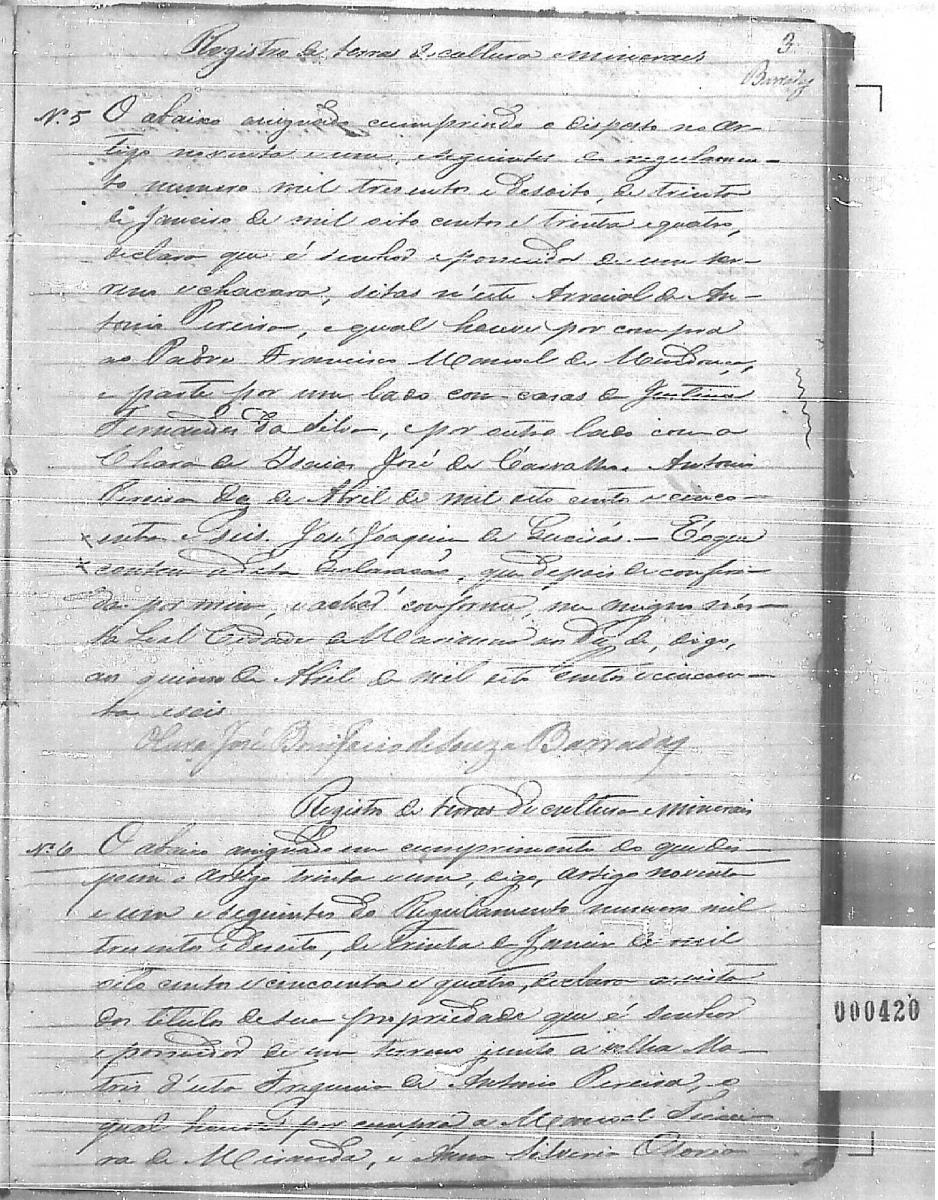 3
Registro de terras de cultura e mineraes
Barradas
N.º 5 O abaixo assignado cumprindo o disposto no Ar-
tigo noventa e um, e seguintes do regulamen-
to numero mil tresentos e desoito, de trinta
de Janeiro de mil oito centos e trenta e quatro,
declara que é senhor e possuidor de um ter-
reno e chacara, sitas n'este Arraial de An-
tonio Pereira, o qual houve por compra
ao Padre Francisco Manoel de Mendonça,
e parte por um lado com casas de Justina
Fernandes da Silva, e por outro lado com a
Chara de Isaias José de Carvalho. Antonio
Pereira de Abril de mil oito centos e cinco-
enta e seis. José Joaquim de — É o que
contem a dita declaração, que depois de conferi-
da por mim, e achei conforme, me n'es-
ta Leal Cidade de Marianna aos de, digo,
aos quinse de Abril de mil oito centos e cincoen-
ta e seis
José Bonifacio de Souza Barradas
Registro de terras de cultura e minerais
N.º 6 O abaixo assignado em cumprimento do que dis-
poem o Artigo trinta e um, digo, Artigo noventa
e um e seguintes do Regulamento numero mil
tresentos e desoito, de trinta de Janeiro de mil
oito centos e cincoenta e quatro, declara a vista
dos titulos de sua propriedade que é senhor
e possuidor de um terreno junto a velha Ma-
tris d'esta Freguesia de Antonio Pereira, o
qual houve por compra a Manoel
ra de Miranda, e Anna Silveria
000420